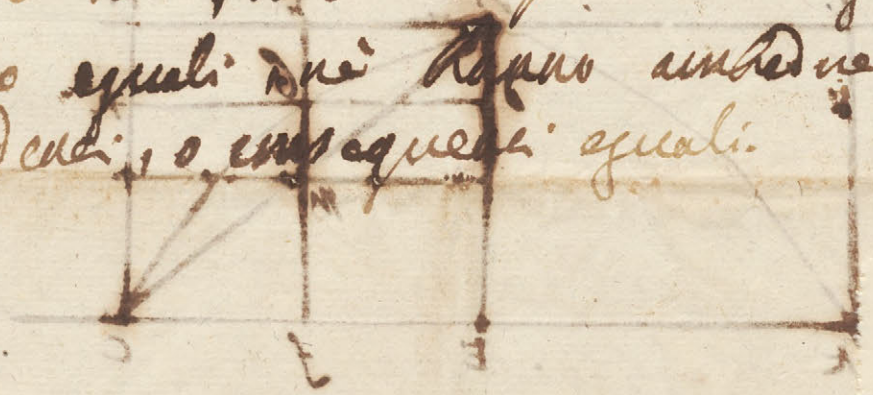 o eguali, nè hanno ambedue
denti, o conseguenti eguali.